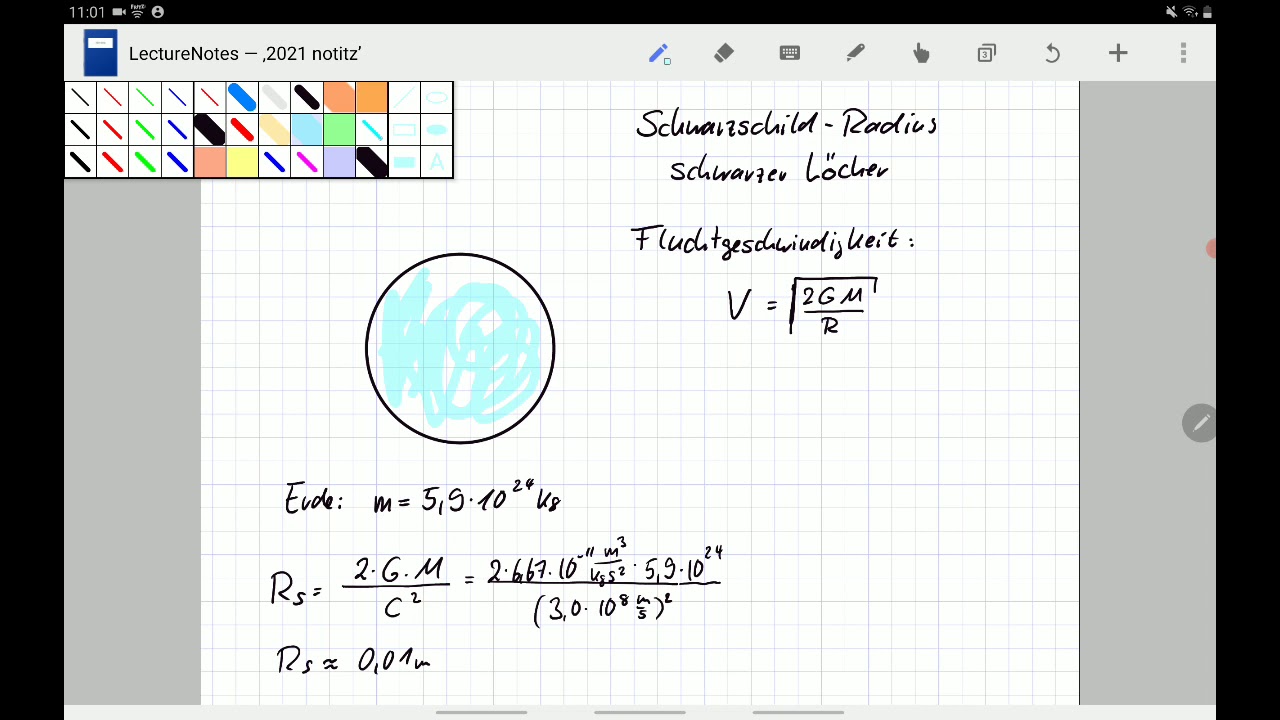 11:01
LectureNotes — ‚2021 notitz’
3
A
Schwarzschild-Radius
schwarzer Löcher
Fluchtgeschwindigkeit:
V = √(2GM/R)
Erde: m = 5,9·10²⁴ kg
Rs = 2·G·M/C² = 2·6,67·10⁻¹¹ m³/kgs² · 5,9·10²⁴/(3,0·10⁸ m/s)²
Rs ≈ 0,01m